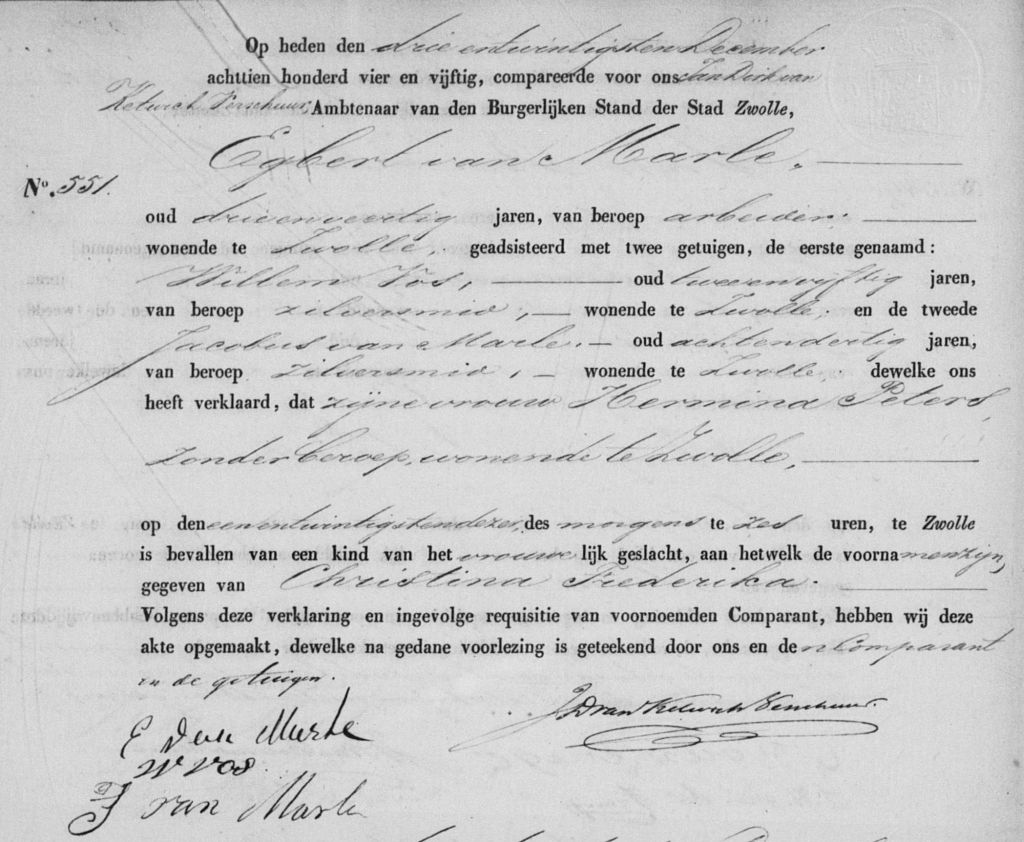 Op heden den drie entwintigsten December
achttien honderd vier en vijftig, compareerde voor ons Jan Dirk van
Ketwich Verschuur Ambtenaar van den Burgerlijken Stand der Stad Zwolle,
Egbert van Marle,
No. 551.
oud drieenveertig jaren, van beroep arbeider.
wonende te Zwolle, geadsisteerd met twee getuigen, de eerste genaamd:
Willem Vos, oud tweeenvijftig jaren,
van beroep zilversmid, wonende te Zwolle, en de tweede
Jacobus van Marle. oud achtendertig jaren,
van beroep zilversmid, wonende te Zwolle, dewelke ons
heeft verklaard, dat zijne vrouw Hermina Peters,
zonder beroep, wonende te Zwolle,
op den eenentwintigsten dezer, des morgens te zes uren, te Zwolle
is bevallen van een kind van het vrouwelijk geslacht, aan hetwelk de voornamen zijn,
gegeven van Christina Frederika.
Volgens deze verklaring en ingevolge requisitie van voornoemden Comparant, hebben wij deze
akte opgemaakt, dewelke na gedane voorlezing is geteekend door ons en den Comparant
en de getuigen.
JD van Ketwich Verschuur.
E van Marle
W Vos
J van Marle